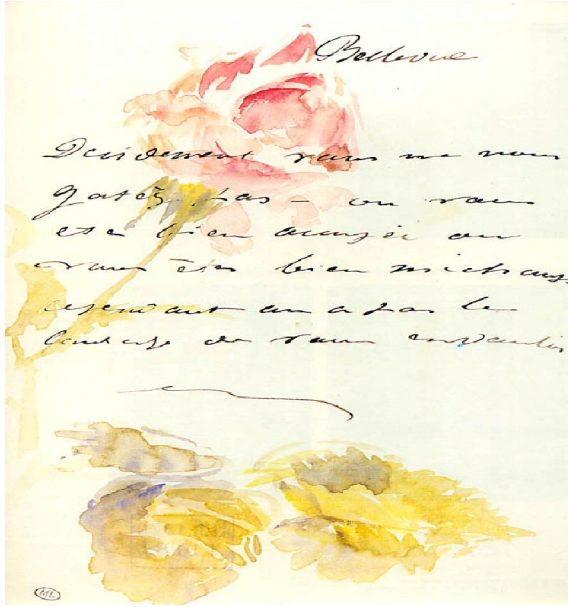 Bellevue
Decidement vous ne nous
gatés pas – ou vous
ete bien occupée ou
vous êtes bien méchante
cependant on a pas le
courage de vous en vouloir
ML